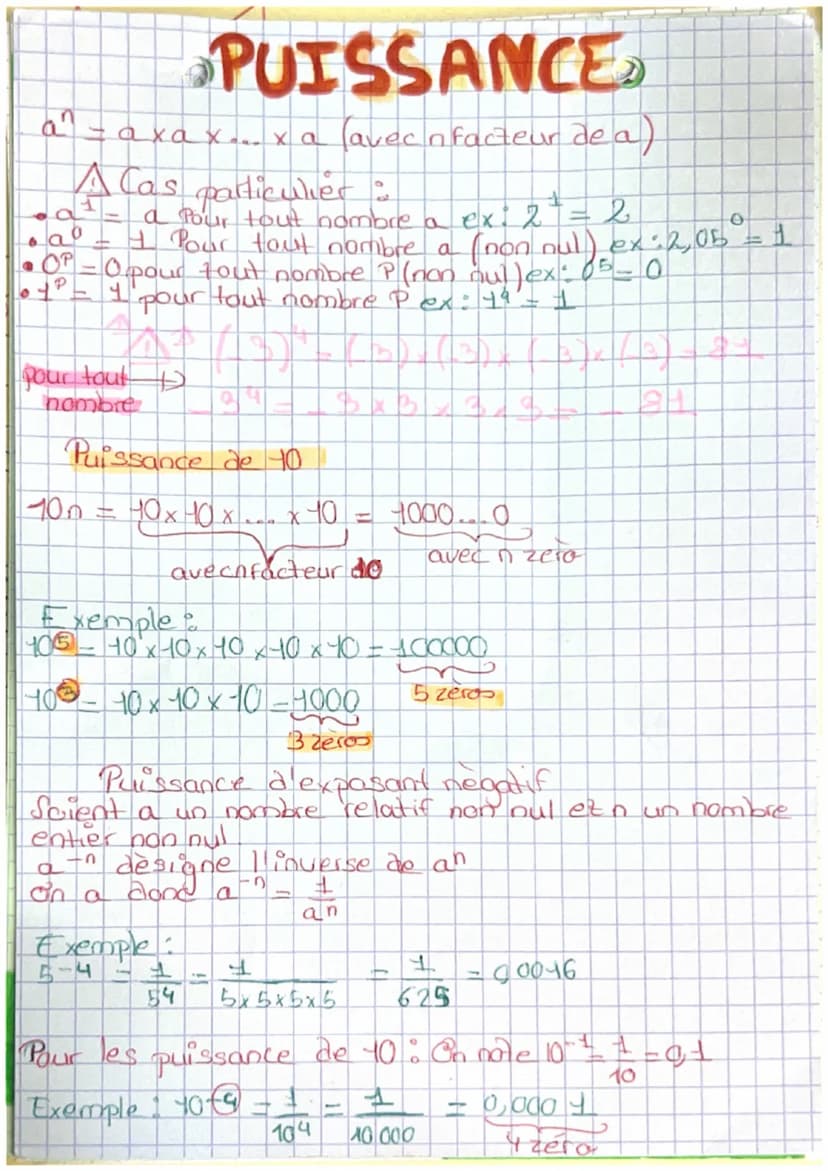 PUISSANCE
aⁿ = a x a x ... x a (avec n facteur de a)
⚠ Cas particulier :
• a¹ = a Pour tout nombre a ex : 2¹ = 2
• a⁰ = 1 Pour tout nombre a (non nul) ex : 2,05⁰ = 1
• 0ᵖ = 0 pour tout nombre P (non nul) ex : 0⁵ = 0
• 1ᵖ = 1 pour tout nombre P ex : 1⁴ = 1
⚠ (-3)⁴ = (-3) x (-3) x (-3) x (-3) = 81
pour tout nombre →
-3⁴ = -3 x 3 x 3 x 3 = -81
Puissance de 10
10n = 10 x 10 x ... x 10 = 1000...0
avec n facteur 10
avec n zéro
Exemple :
10⁵ = 10 x 10 x 10 x 10 x 10 = 100000
5 zèros
10³ = 10 x 10 x 10 = 1000
3 zèros
Puissance d'exposant nègatif
Soient a un nombre relatif non nul et n un nombre
entier non nul.
a⁻ⁿ dèsigne l'inverse de aⁿ
On a donc a⁻ⁿ = 1/aⁿ
Exemple :
5-4 = 1/54 = 1/(5 x 5 x 5 x 5) = 1/625 = 0,0016
Pour les puissance de 10 : On note 10⁻¹ = 1/10 = 0,1
Exemple : 10⁻⁴ = 1/10⁴ = 1/10 000 = 0,000 1
4 zéro